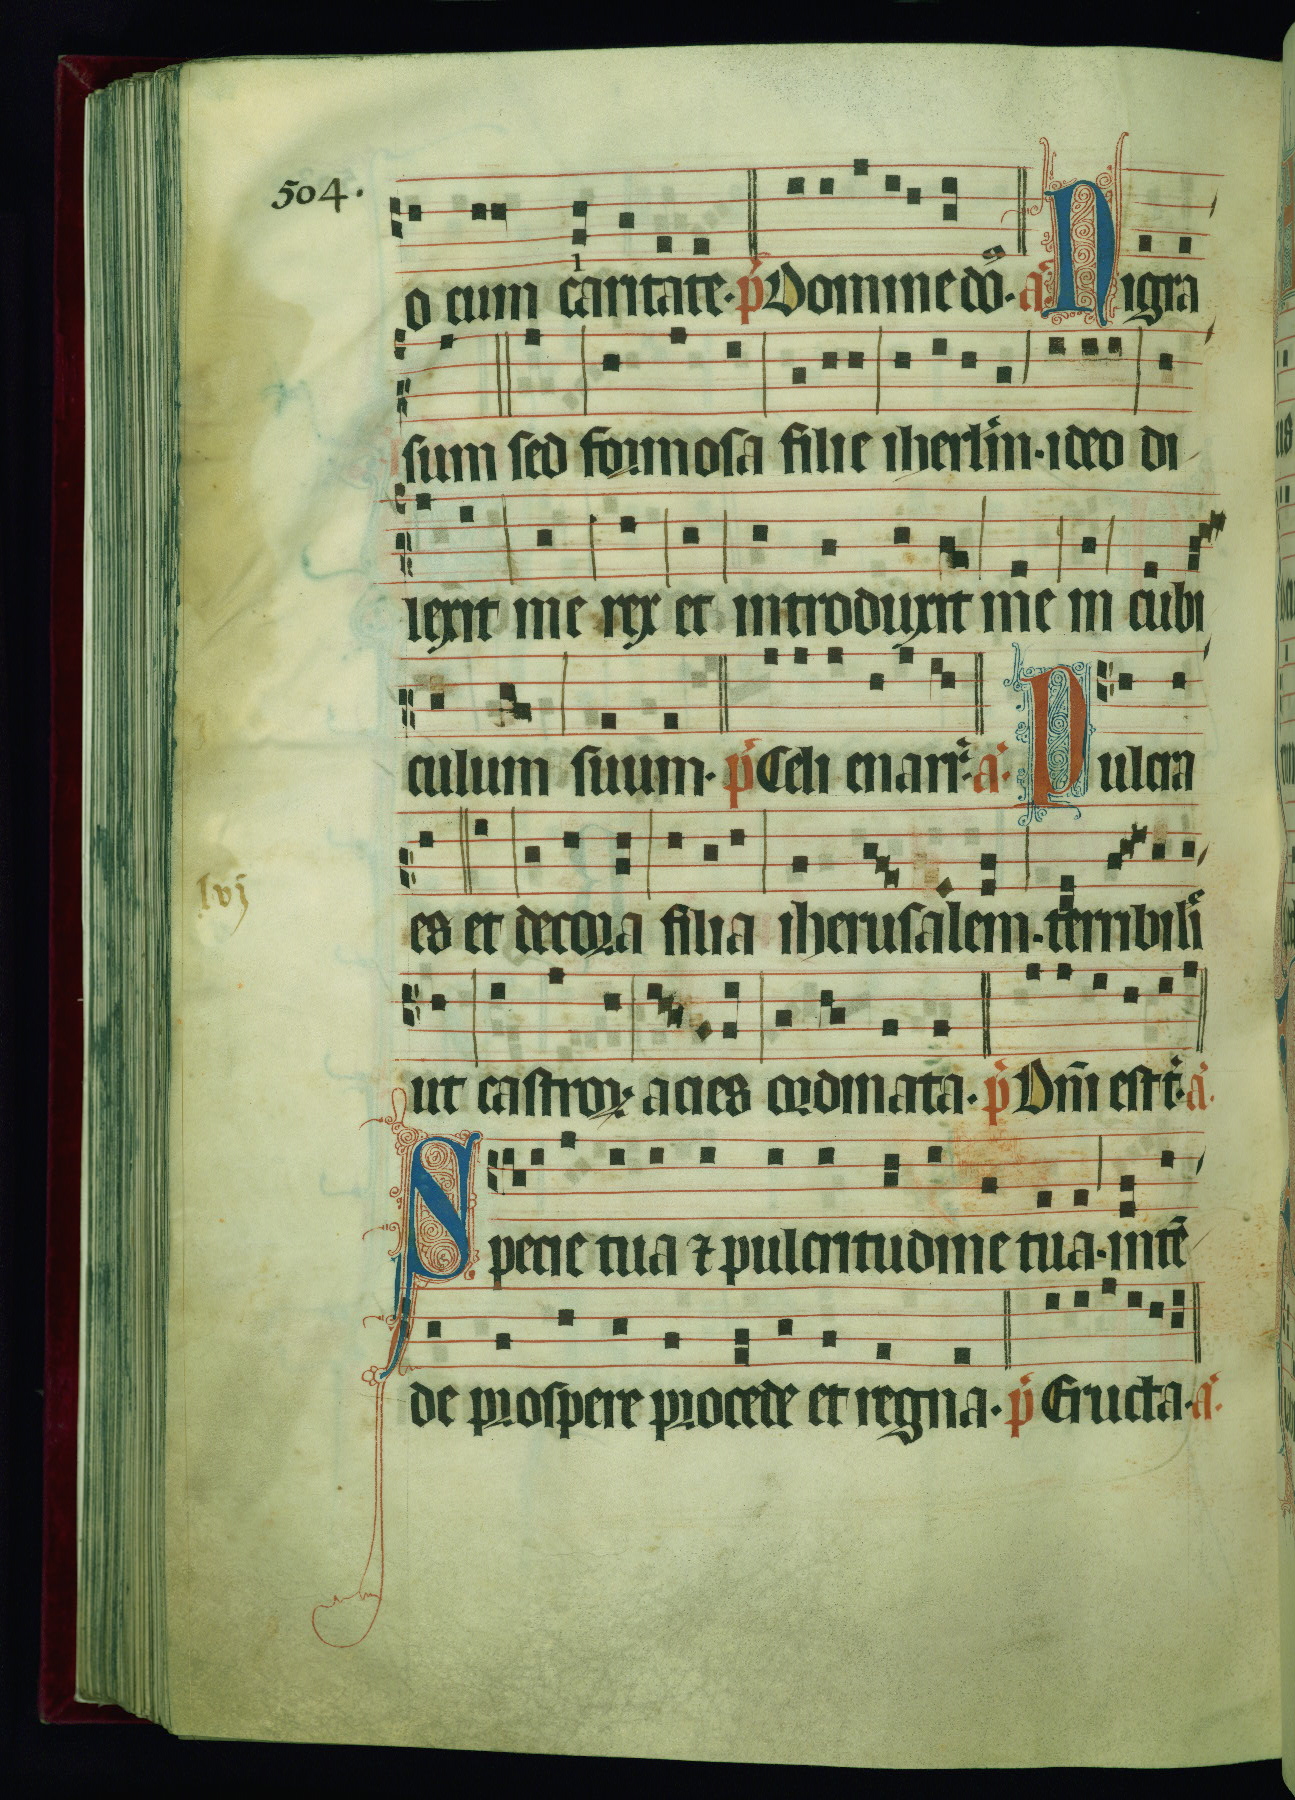 504.
o cum caritate. p̄ Domine dñs. a. Nigra
sum sed formosa filie iherlm̄. ideo di
lexit me rex et introduxit me in cubi
culum suum. p̄ Celi enarr̄. a. Pulcra
es et decora filia iherusalem. terribili
lvj
ut castroꝝ acies ordinata. p̄ Dñi est t̄. a.
Specie tua ⁊ pulcritudine tua. intē
de prospere procede et regna. p̄ Eructa. a.